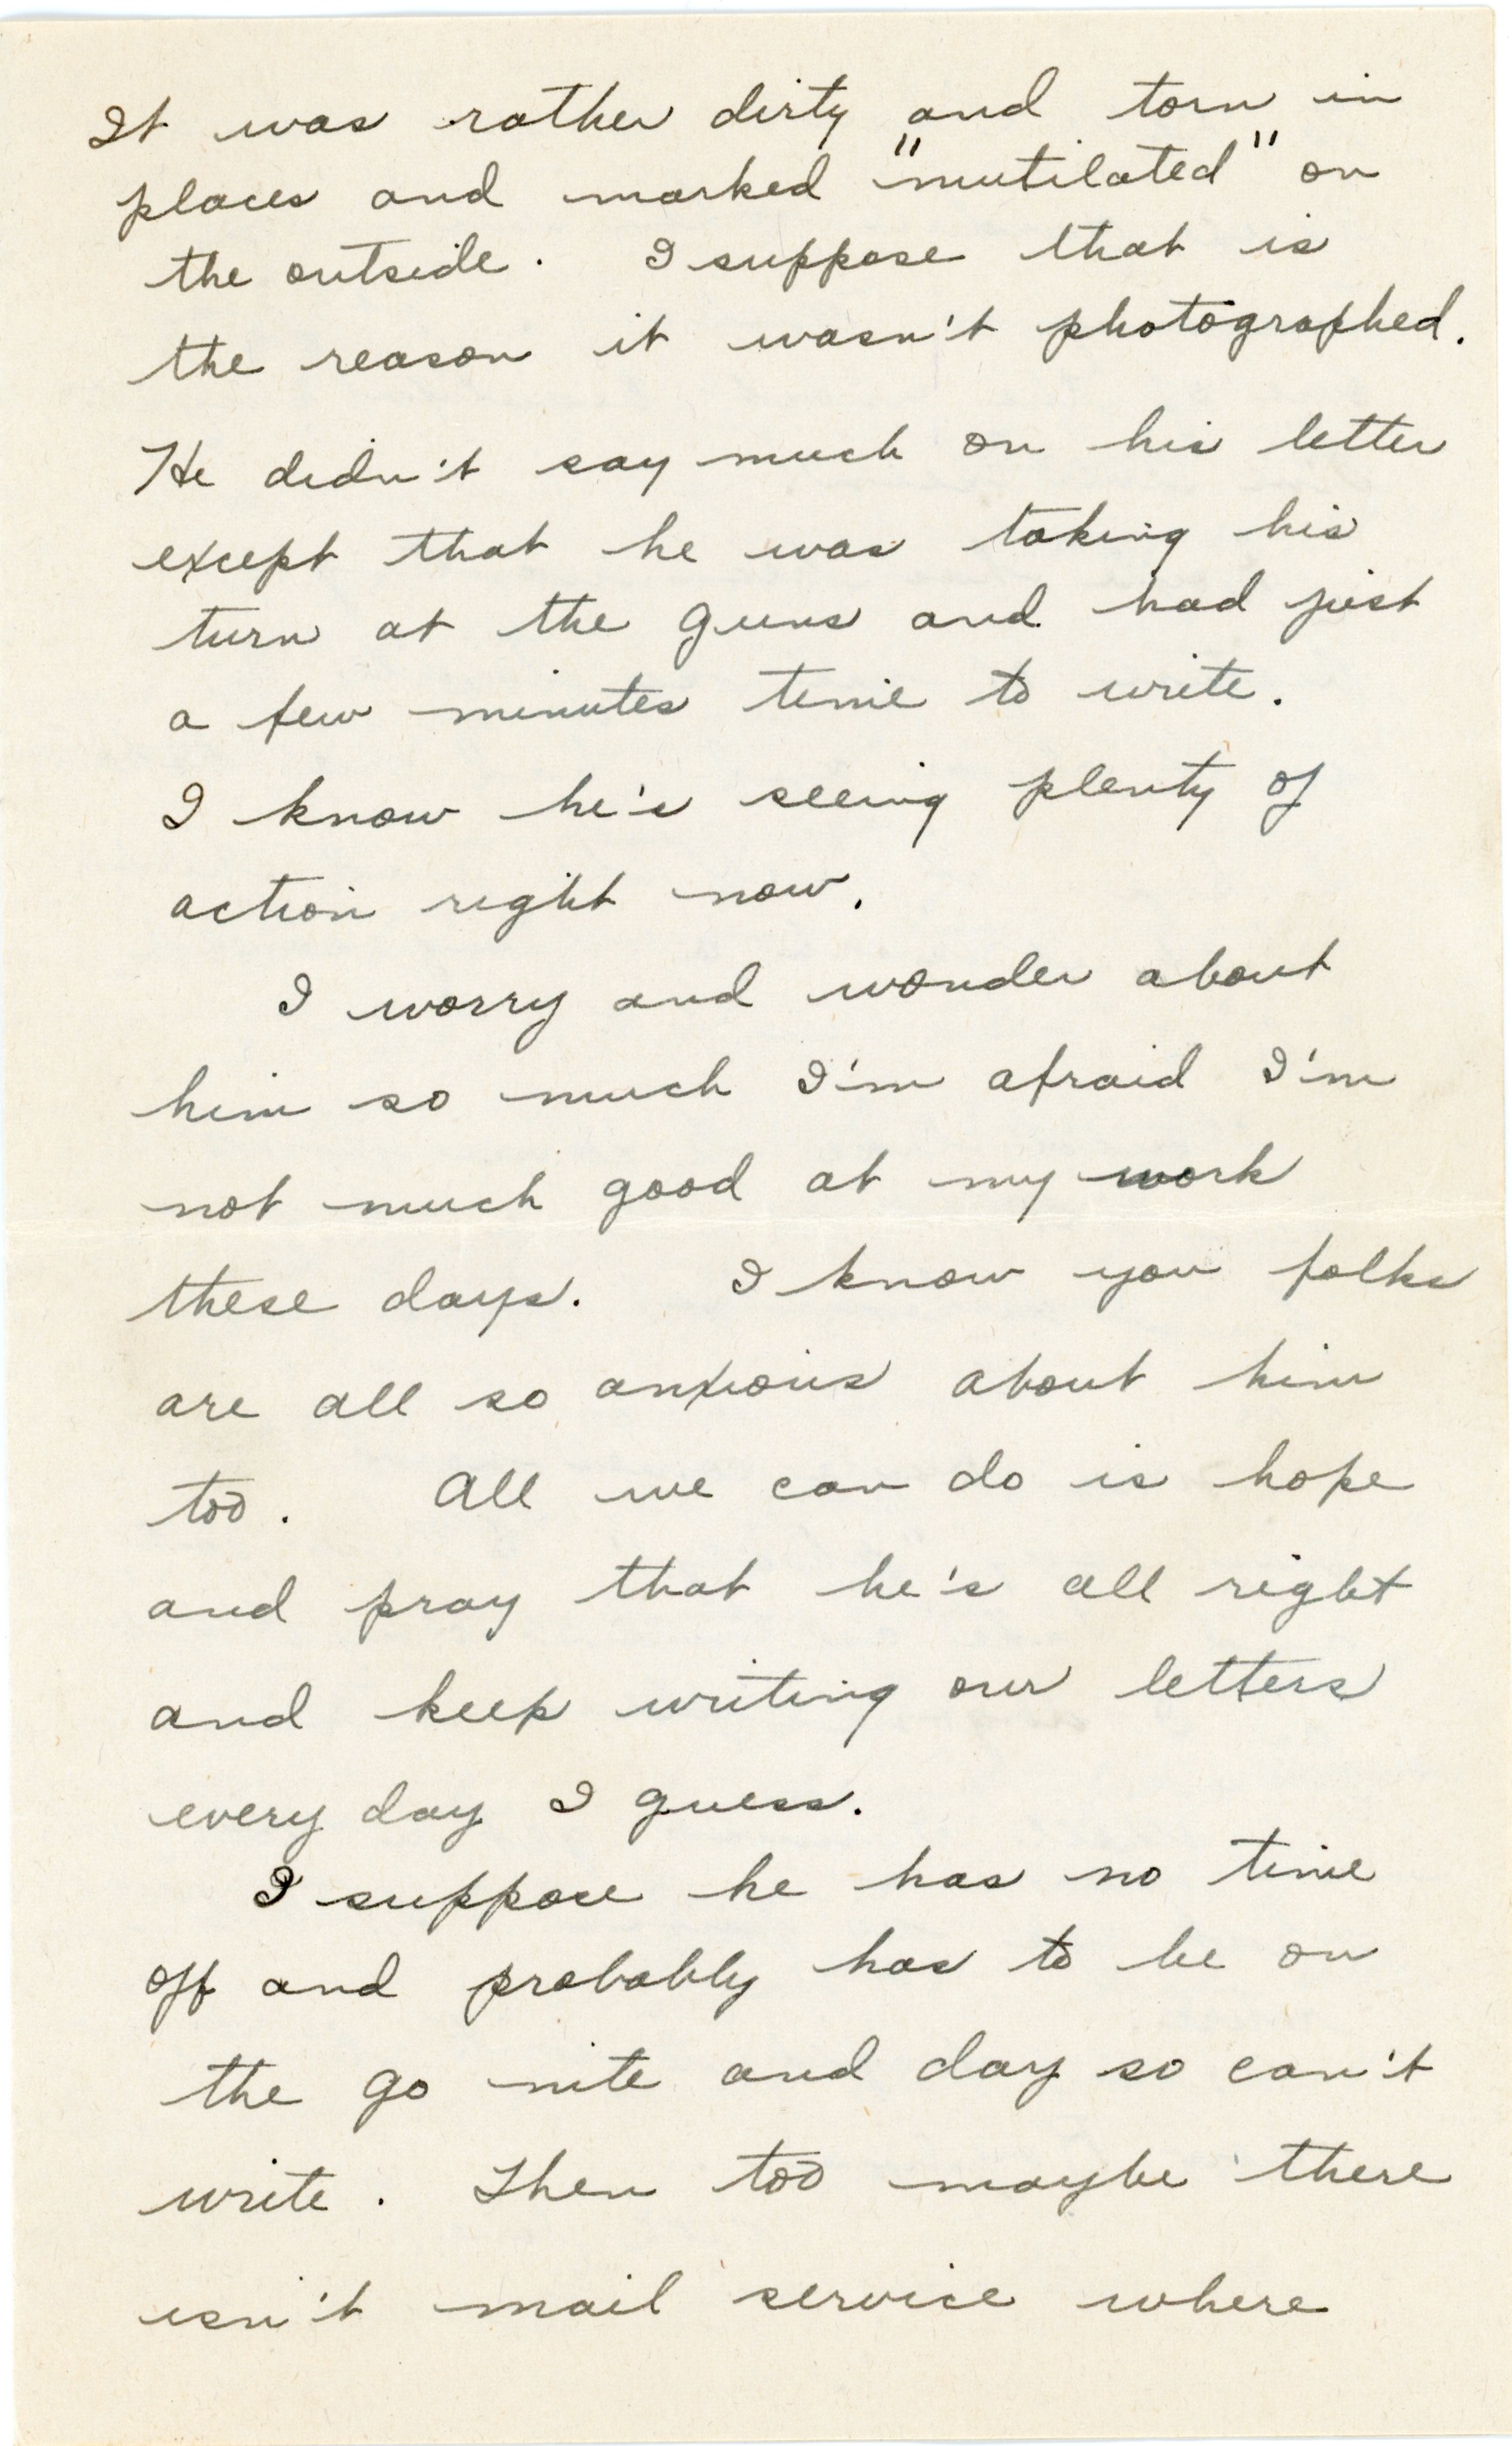 It was rather dirty and torn in
places and marked "mutilated" on
the outside. I suppose that is
the reason it wasn't photographed.
He didn't say much on his letter
except that he was taking his
turn at the guns and had just
a few minutes time to write.
I know he's seeing plenty of
action right now.
I worry and wonder about
him so much I'm afraid I'm
not much good at my work
these days. I know you folks
are all so anxious about him
too. All we can do is hope
and pray that he's all right
and keep writing our letters
every day I guess.
I suppose he has no time
off and probably has to be on
the go nite and day so can't
write. Then too maybe there
isn't mail service where